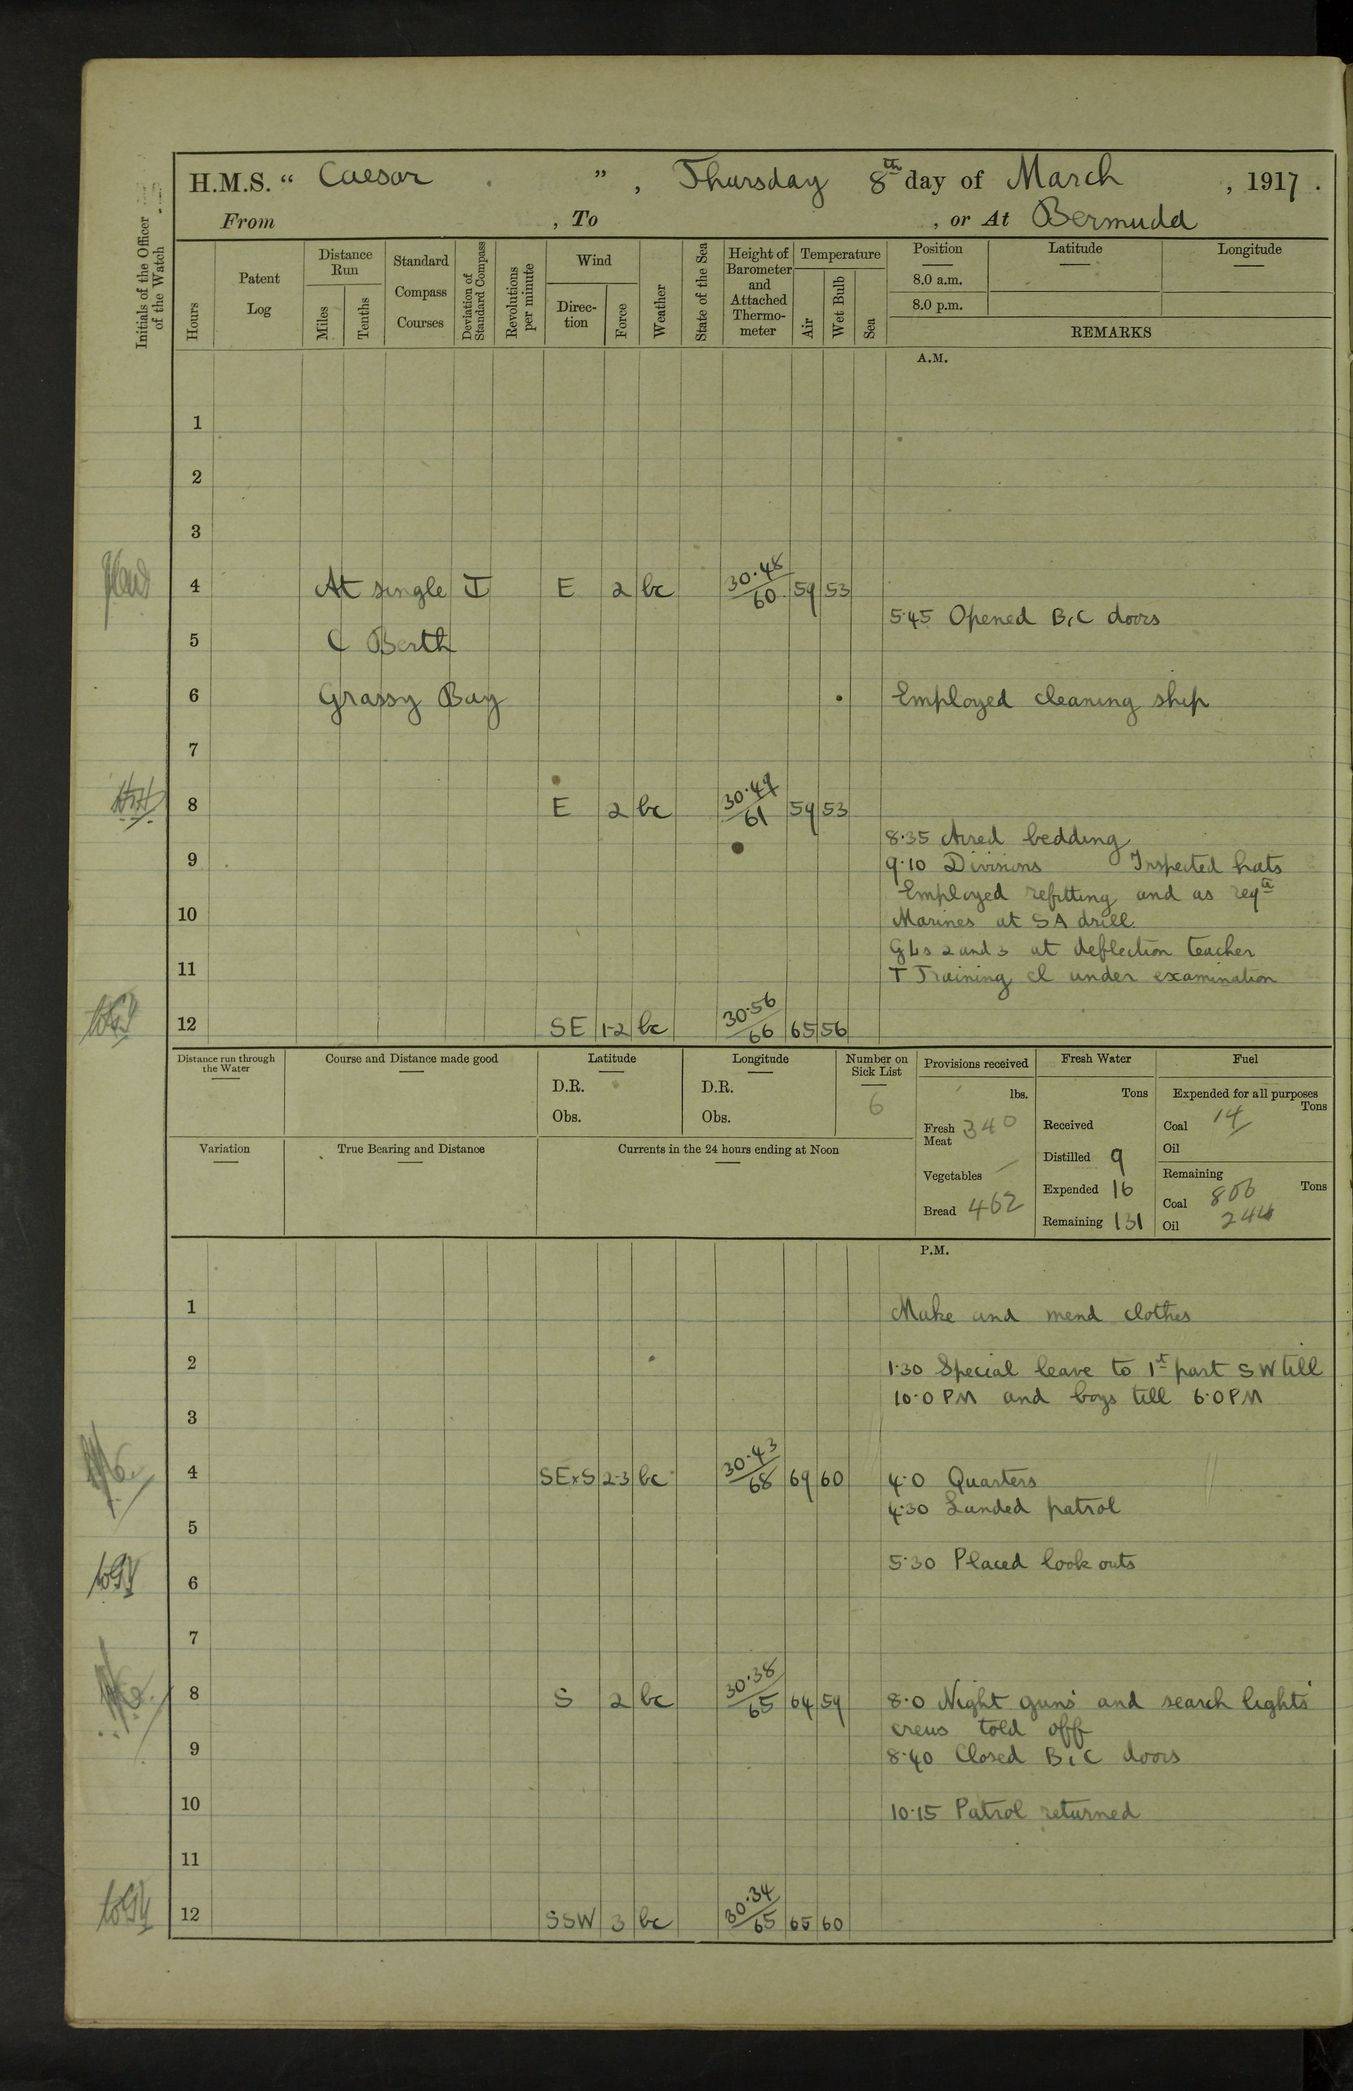 H.M.S. “ Caesar ” , Thursday 8th day of March , 1917 .
From , To , or At Bermuda
Initials of the Officer of the Watch
Hours
Patent Log
Distance Run
Miles
Tenths
Standard Compass Courses
Deviation of Standard Compass
Revolutions per minute
Wind
Direc-tion
Force
Weather
State of the Sea
Height of Barometer and Attached Thermo-meter
Temperature
Air
Wet Bulb
Sea
Position Latitude Longitude
8.0 a.m.
8.0 p.m.
REMARKS
A.M.
1
2
3
4 At single E 2 bc 30.48/60 59 53
5.45 Opened B.C doors
5 C Berth
6 Grassy Bay Employed cleaning ship
7
8 E 2 bc 30.49/61 59 53
8.35 Aired bedding
9 9.10 Divisions Inspected hats
Employed refitting and as reqd
10 Marines at SA drill
GLs 2 and 3 at deflection teacher
11 T Training cl under examination
12 SE 1-2 bc 30.56/66 65 56
Distance run through the Water
Course and Distance made good
Latitude
D.R.
Obs.
Longitude
D.R.
Obs.
Number on Sick List
6
Provisions received
lbs.
Fresh Meat 340
Vegetables —
Bread 462
Fresh Water
Tons
Received
Distilled 9
Expended 16
Remaining 131
Fuel
Expended for all purposes
Tons
Coal 14
Oil
Remaining
Tons
Coal 806
Oil 244
Variation
True Bearing and Distance
Currents in the 24 hours ending at Noon
P.M.
1 Make and mend clothes
2 1.30 Special leave to 1st part SW till
10.0 PM and boys till 6.0 PM
3
4 SExS 2-3 bc 30.43/68 69 60 4.0 Quarters
4.30 Landed patrol
5
5.30 Placed look outs
6
7
8 S 2 bc 30.38/65 64 59 8.0 Night guns' and search lights'
crews told off
9 8.40 Closed B.C doors
10 10.15 Patrol returned
11
12 SSW 3 bc 30.34/65 65 60